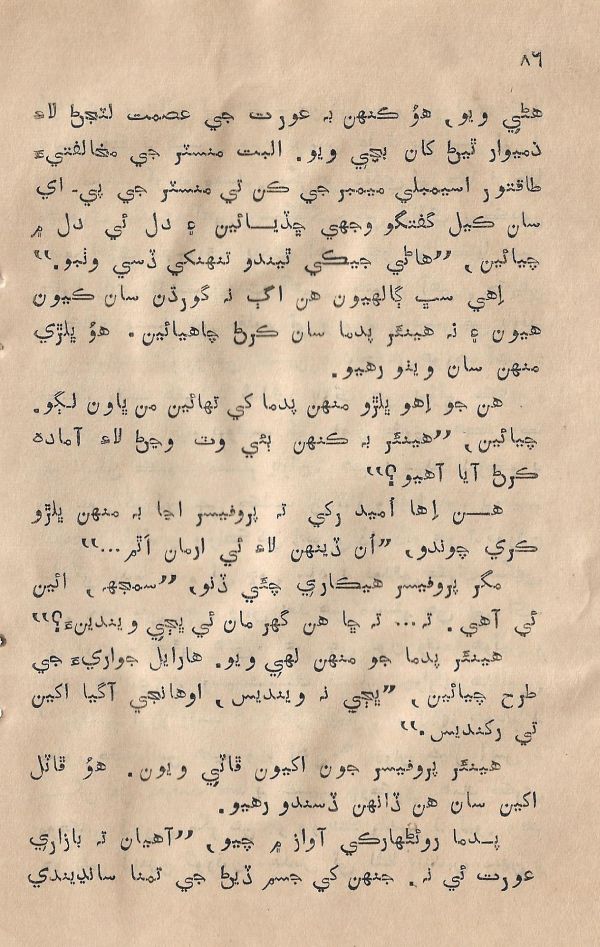 ٨٦
هڻي ويو, هوُ ڪنهن بہ عورت جي عصمت لٽجڻ لاءِ
ذميوار ٿيڻ کان بچي ويو. البت منسٽر جي مخالفتيءَ
طاقتور اسيمبلي ميمبر جي ڪن تي منسٽر جي پي- اي
سان ڪيل گفتگو وجهي ڇڏيائين ۽ دل ئي دل ۾
چيائين, ”هاڻي جيڪي ٿيندو تنهنکي ڏسي وٺبو.“
اِهي سڀ ڳالهيون هن اڳ نہ گورڌن سان ڪيون
هيون ۽ نہ هينئر پدما سان ڪرڻ چاهيائين. هوُ ڀلڙي
منهن سان ويٺو رهيو.
هن جو اِهو ڀلڙو منهن پدما کي تهائين من ڀاون لڳو.
چيائين, ”هينئر بہ ڪنهن ٻئي وٽ وڃڻ لاءِ آماده
ڪرڻ آيا آهيو؟“
هن اِها اُميد رکي تہ پروفيسر اڃا بہ منهن ڀلڙو
ڪري چوندو, ”اُن ڏينهن لاءِ ئي ارمان اَٿم...“
مگر پروفيسر هيڪاري چٿي ڏنو, ”سمجهہ, ائين
ئي آهي. تہ... تہ ڇا هن گهر مان ئي ڀڄي ويندينءَ؟“
هينئر پدما جو منهن لهي ويو. هارايل جواريءَ جي
طرح چيائين, ”ڀڄي نہ وينديس, اوهانجي آگيا اکين
تي رکنديس.“
هينئر پروفيسر جون اکيون ڦاٽي ويون. هوُ ڦاٽل
اکين سان هن ڏانهن ڏسندو رهيو.
پدما روئڻهارڪي آواز ۾ چيو, ”آهيان تہ بازاري
عورت ئي نہ. جنهن کي جسم ڏيڻ جي تمنا سانڍيندي